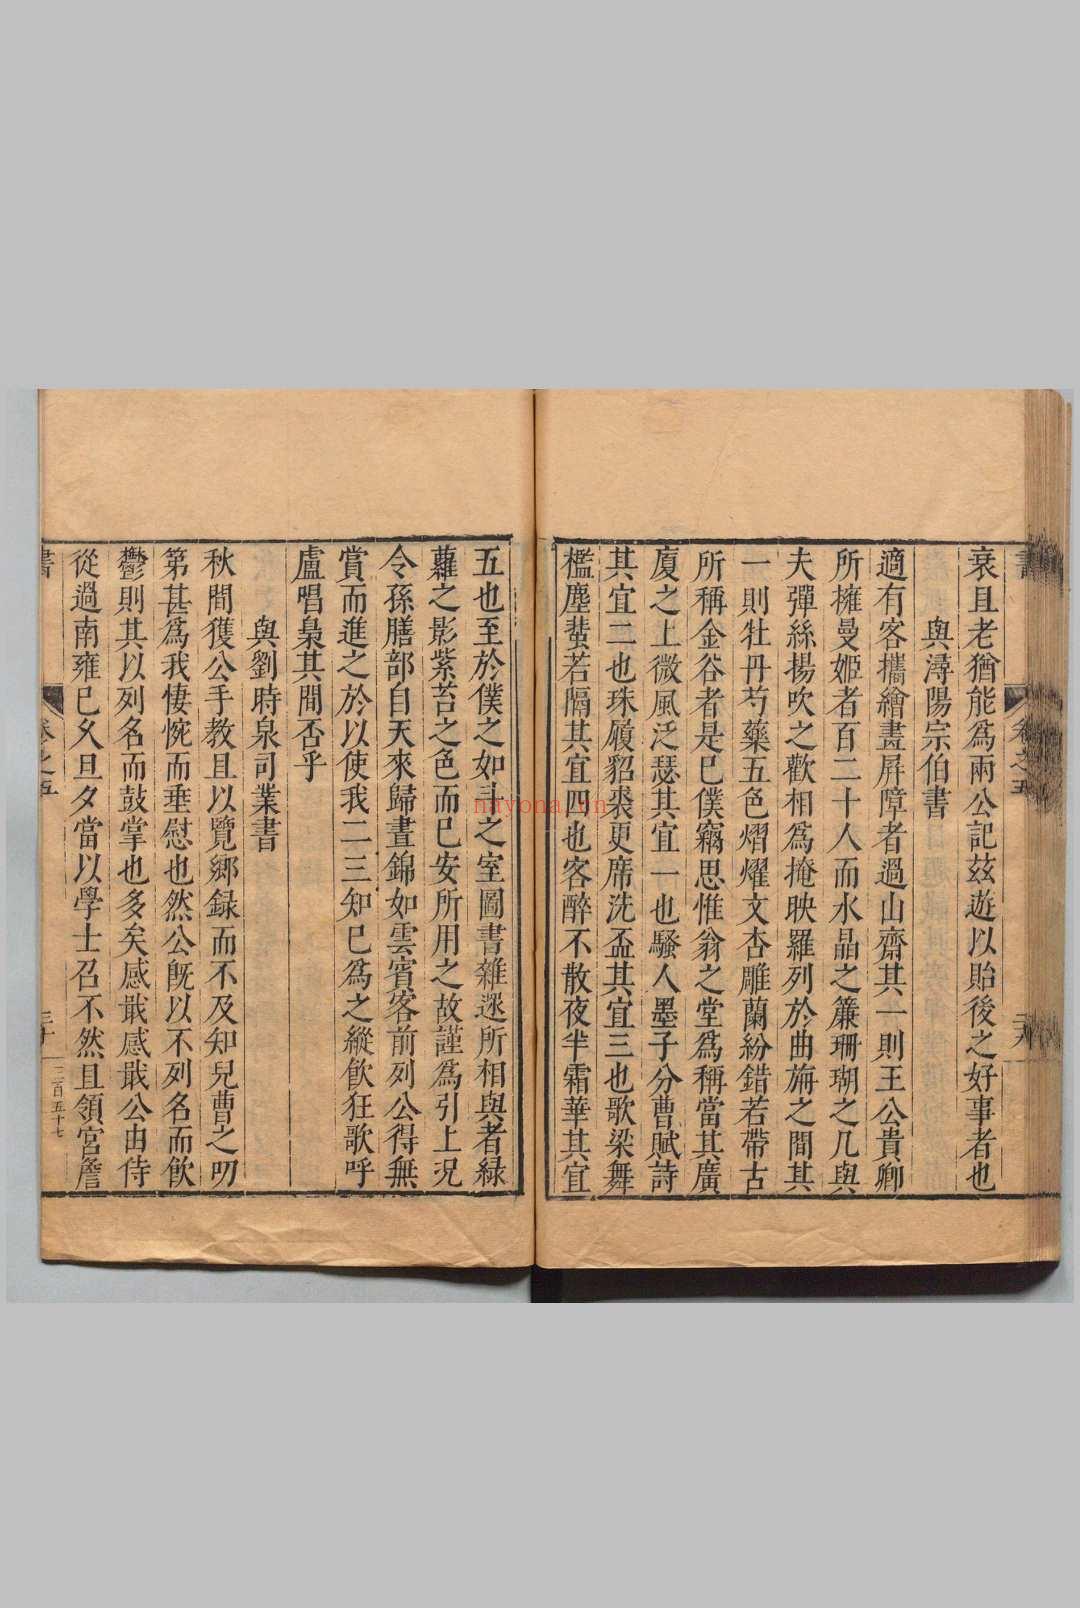 衰且老猶能爲兩公記茲遊以貽後之好事者也
與潯陽宗伯書
適有客攜繪畫屛障者過山齋其一則王公貴卿
所擁曼姬者百二十人而水晶之簾珊瑚之几與
夫彈絲揚吹之歡相爲掩映羅列於曲旃之間其
一則牡丹芍藥五色熠燿文杏雕蘭紛錯若帶古
所稱金谷者是巳僕竊思惟翁之堂爲稱當其廣
廈之上微風泛瑟其宜一也騷人墨子分曹賦詩
其宜二也珠履貂裘更席洗盃其宜三也歌梁舞
檻塵蜚若隔其宜四也客醉不散夜半霜華其宜
五也至於僕之如斗之室圖書雜遝所相與者緑
蘿之影紫苔之色而巳安所用之故謹爲引上況
令孫膳部自天來歸晝錦如雲賓客前列公得無
賞而進之於以使我二三知巳爲之縱飲狂歌呼
盧唱梟其間否乎
與劉時泉司業書
秋間獲公手教且以覽鄉録而不及知兒曹之叨
第甚爲我悽惋而垂慰也然公旣以不列名而飲
鬱則其以列名而鼓掌也多矣感戢感戢公由侍
從過南雍巳夊旦夕當以學士召不然且領宮詹
書
卷之五
三十
二百五十七
nayona.cn